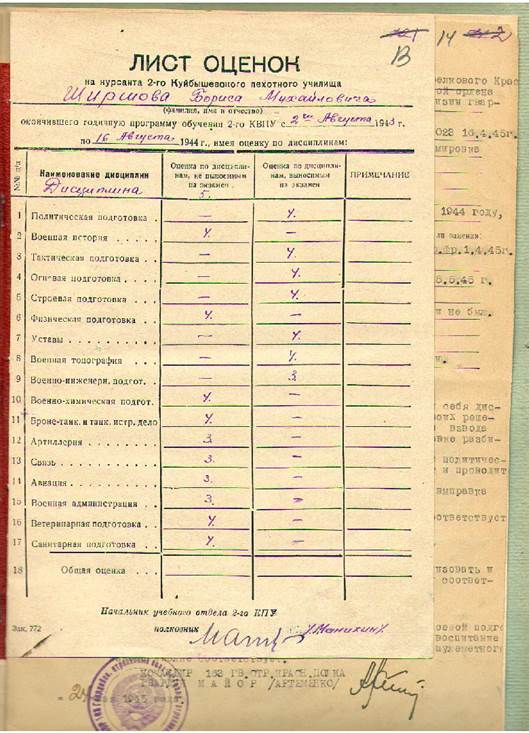 13
14
ЛИСТ ОЦЕНОК
на курсанта 2-го Куйбышевского пехотного училища
Ширшова Бориса Михайловича
(фамилия, имя и отчество)
окончившего годичную программу обучения 2-го КВПУ с 2го Августа 1943 г.
по 16 Августа 1944 г., имея оценку по дисциплинам:
№№ п/п Наименование дисциплин Оценка по дисциплинам, не выносимым на экзамен Оценка по дисциплинам, выносимым на экзамен ПРИМЕЧАНИЕ
Дисциплина 5.
1 Политическая подготовка . — 4.
2 Военная история . . . . 4. —
3 Тактическая подготовка . . — 4.
4 Огневая подготовка . . . — 4.
5 Строевая подготовка . . . — 4.
6 Физическая подготовка . . 4. —
7 Уставы . . . . . . . — 4.
8 Военная топография . . . — 4.
9 Военно-инженерн. подгот. . — 3.
10 Военно-химическая подгот. 4. —
11 Броне-танк. и танк. истр. дело 4. —
12 Артиллерия . . . . . . 3. —
13 Связь . . . . . . . 3. —
14 Авиация . . . . . . . 3. —
15 Военная администрация . . 3. —
16 Ветеринарная подготовка . 4. —
17 Санитарная подготовка . . 4. —
18 Общая оценка . . — —
Начальник учебного отдела 2-го КПУ
Зак. 772
полковник /Манихин/
КОМАНДИР 163 ГВ.СТР.КРАСН.ПОЛКА
ГВАРДИИ МАЙОР /АРТЕМЕНКО/
16.4.45г.
1944 году,
1.4.45г.
и не был.
себя дис-
взвода
политичес-
и проводит
выправка
соответствует
соответ-
воспитание
пулеметного